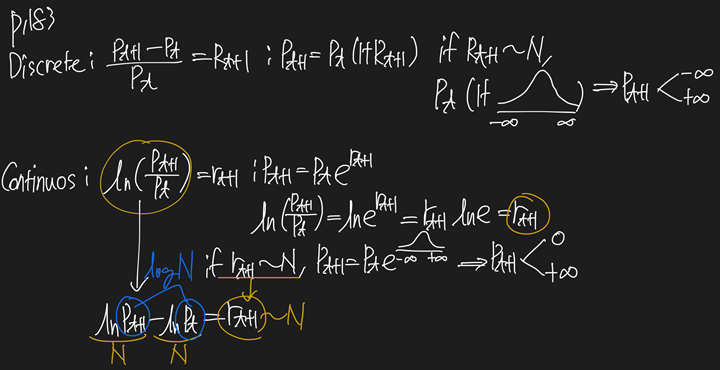 p.183
Discrete ; (P_{t+1} - P_t)/P_t = R_{t+1} ; P_{t+1} = P_t (1+R_{t+1}) if R_{t+1} ~ N,
P_t (1+ -∞ ∞ ) ⇒ P_{t+1} < -∞ +∞
Continuos ; ln(P_{t+1}/P_t) = r_{t+1} ; P_{t+1} = P_t e^{r_{t+1}}
ln(P_{t+1}/P_t) = ln e^{r_{t+1}} = r_{t+1} ln e = r_{t+1}
log N if r_{t+1} ~ N, P_{t+1} = P_t e^{-∞ +∞} ⇒ P_{t+1} < 0 +∞
ln P_{t+1} - ln P_t = r_{t+1} ~ N
N N